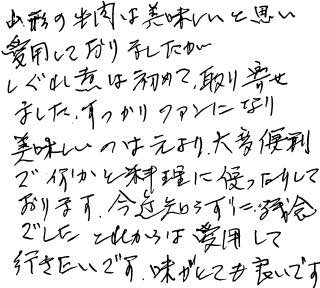 山形の牛肉は美味しいと思い
愛用しておりましたが
しぐれ煮は初めて、取り寄せ
ました、すっかりファンになり
美味しいのは元より、大変便利
で何かと料理に使ったりして
おります。今迄知らずに、残念
でした これからは愛用して
行きたいです。味がとても良いです